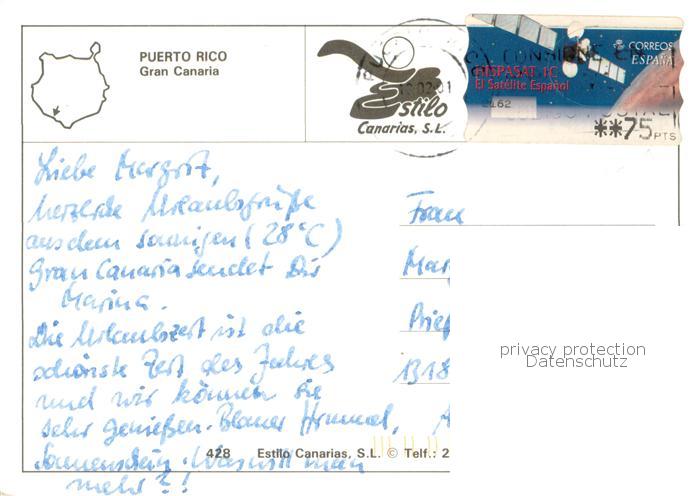 PUERTO RICO
Gran Canaria
Estilo
Canarias, S.L.
CORREOS
ESPAÑA
HISPASAT 1C
El Satélite Español
0162
**75 PTS
Liebe Margrit,
herzliche Urlaubsgrüße
aus dem sonnigen (28°C)
Gran Canaria sendet Dir
Marina.
Die Urlaubszeit ist die
schönste Zeit des Jahres
und wir können sie
sehr genießen. Blauer Himmel,
Sonnenschein. Was will man
mehr?!
Frau
Mar
1318
privacy protection
Datenschutz
428 Estilo Canarias, S.L. © Telf.: 2